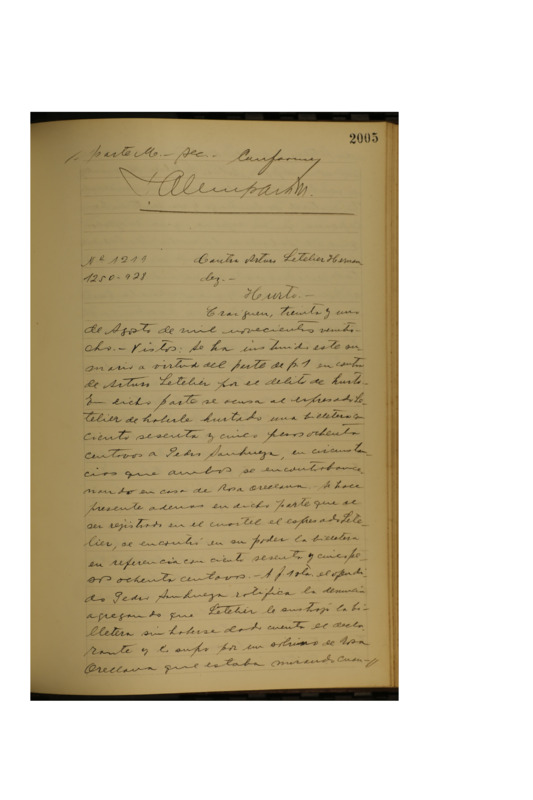 2005
parte M.- sec.- Conforme
Nº 1211 Contra Arturo Letelier Hernan
1250-928 dez.-
Hurto.-
Traiguen, treinta y uno
de Agosto de mil novecientos veintio-
cho.- Vistos. Se ha instruido este su
mario a virtud del parte de f. 1 en contra
de Arturo Letelier por el delito de hurto.
En dicho parte se acusa al espresado Le-
telier de haberle hurtado una billetera con
ciento sesenta y cinco pesos ochenta
centavos a Pedro Sanhueza, en circunstan
cias que ambos se encontraban
mando en casa de Rosa Orellana. Se hace
presente ademas en dicho parte que al
ser rejistrado en el cuartel el espresado Lete-
lier, se encontró en su poder la billetera
en referencia con ciento sesenta y cinco pe-
sos ochenta centavos.- A f. 1 vta. el ofendi-
do Pedro Sanhueza ratifica la denuncia
agregando que Letelier le sustrajo la bi-
lletera sin haberse dado cuenta el decla
rante y lo supo por un sobrino de Rosa
Orellana que estaba mirando cuan